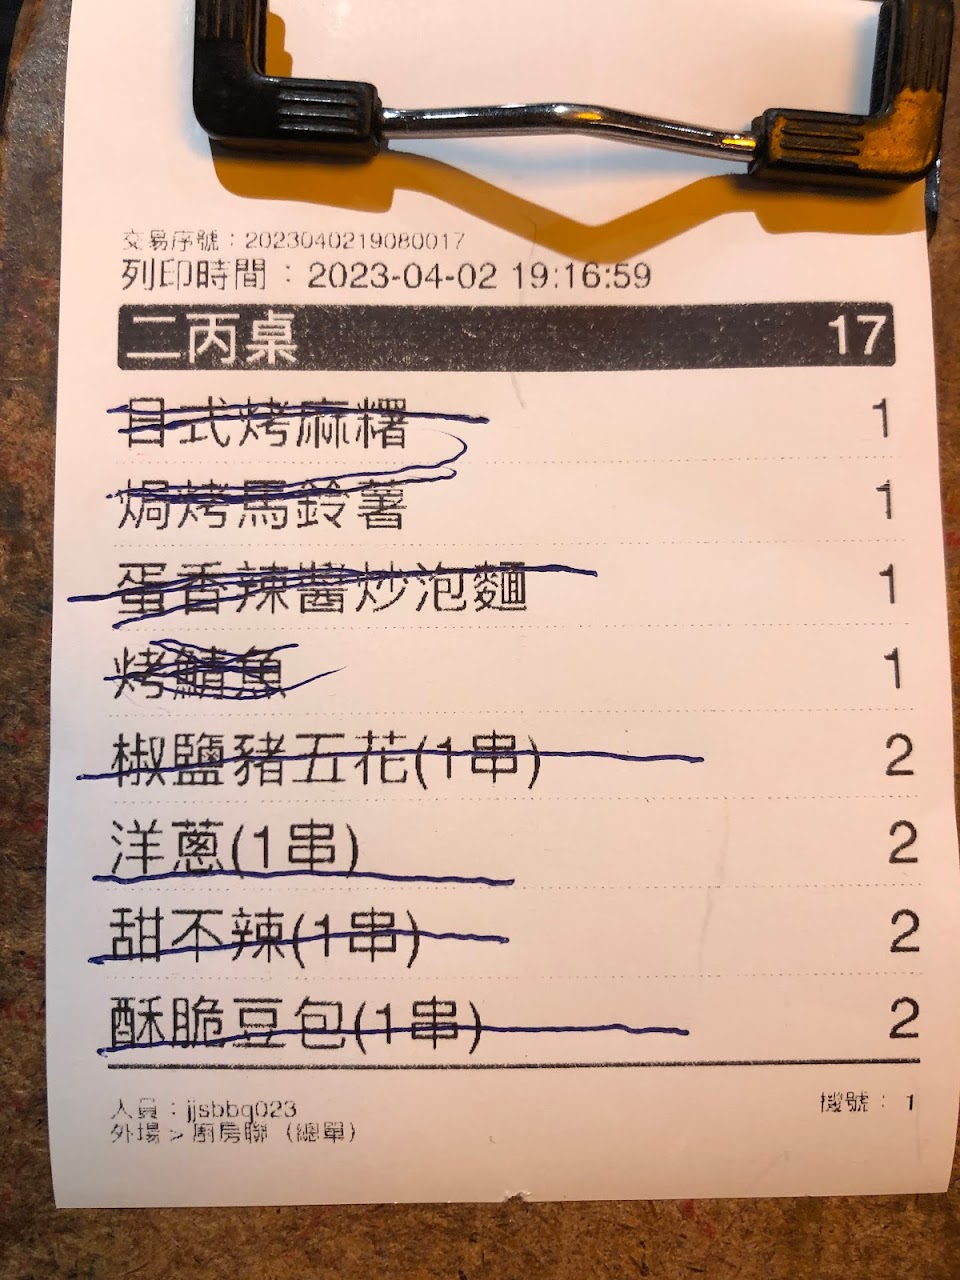 交易序號：2023040219080017
列印時間：2023-04-02 19:16:59
二丙桌 17
日式烤麻糬 1
焗烤馬鈴薯 1
蛋香辣醬炒泡麵 1
烤鯖魚 1
椒鹽豬五花(1串) 2
洋蔥(1串) 2
甜不辣(1串) 2
酥脆豆包(1串) 2
人員：jjsbbq023
機號： 1
外場 > 廚房聯 (總單)